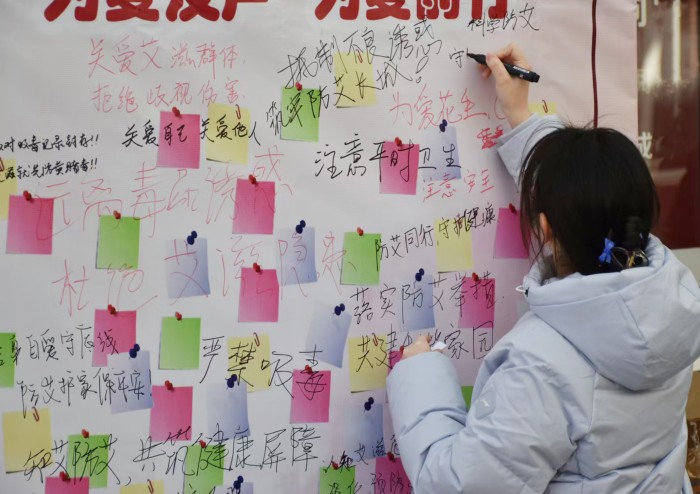 为爱发声 为爱前行
科学防艾
关爱艾滋群体
拒绝歧视伤害
抵制不良诱惑
筑牢防艾长城!
守
关爱自己 关爱他人
为爱花生
注意平时卫生
注意安全
远离毒品诱惑
杜绝艾滋隐患
防艾同行,守护健康
落实防艾举措
共建 家园
自爱守底线
防艾护家保平安!
严禁吸毒
知艾防艾,共筑健康屏障